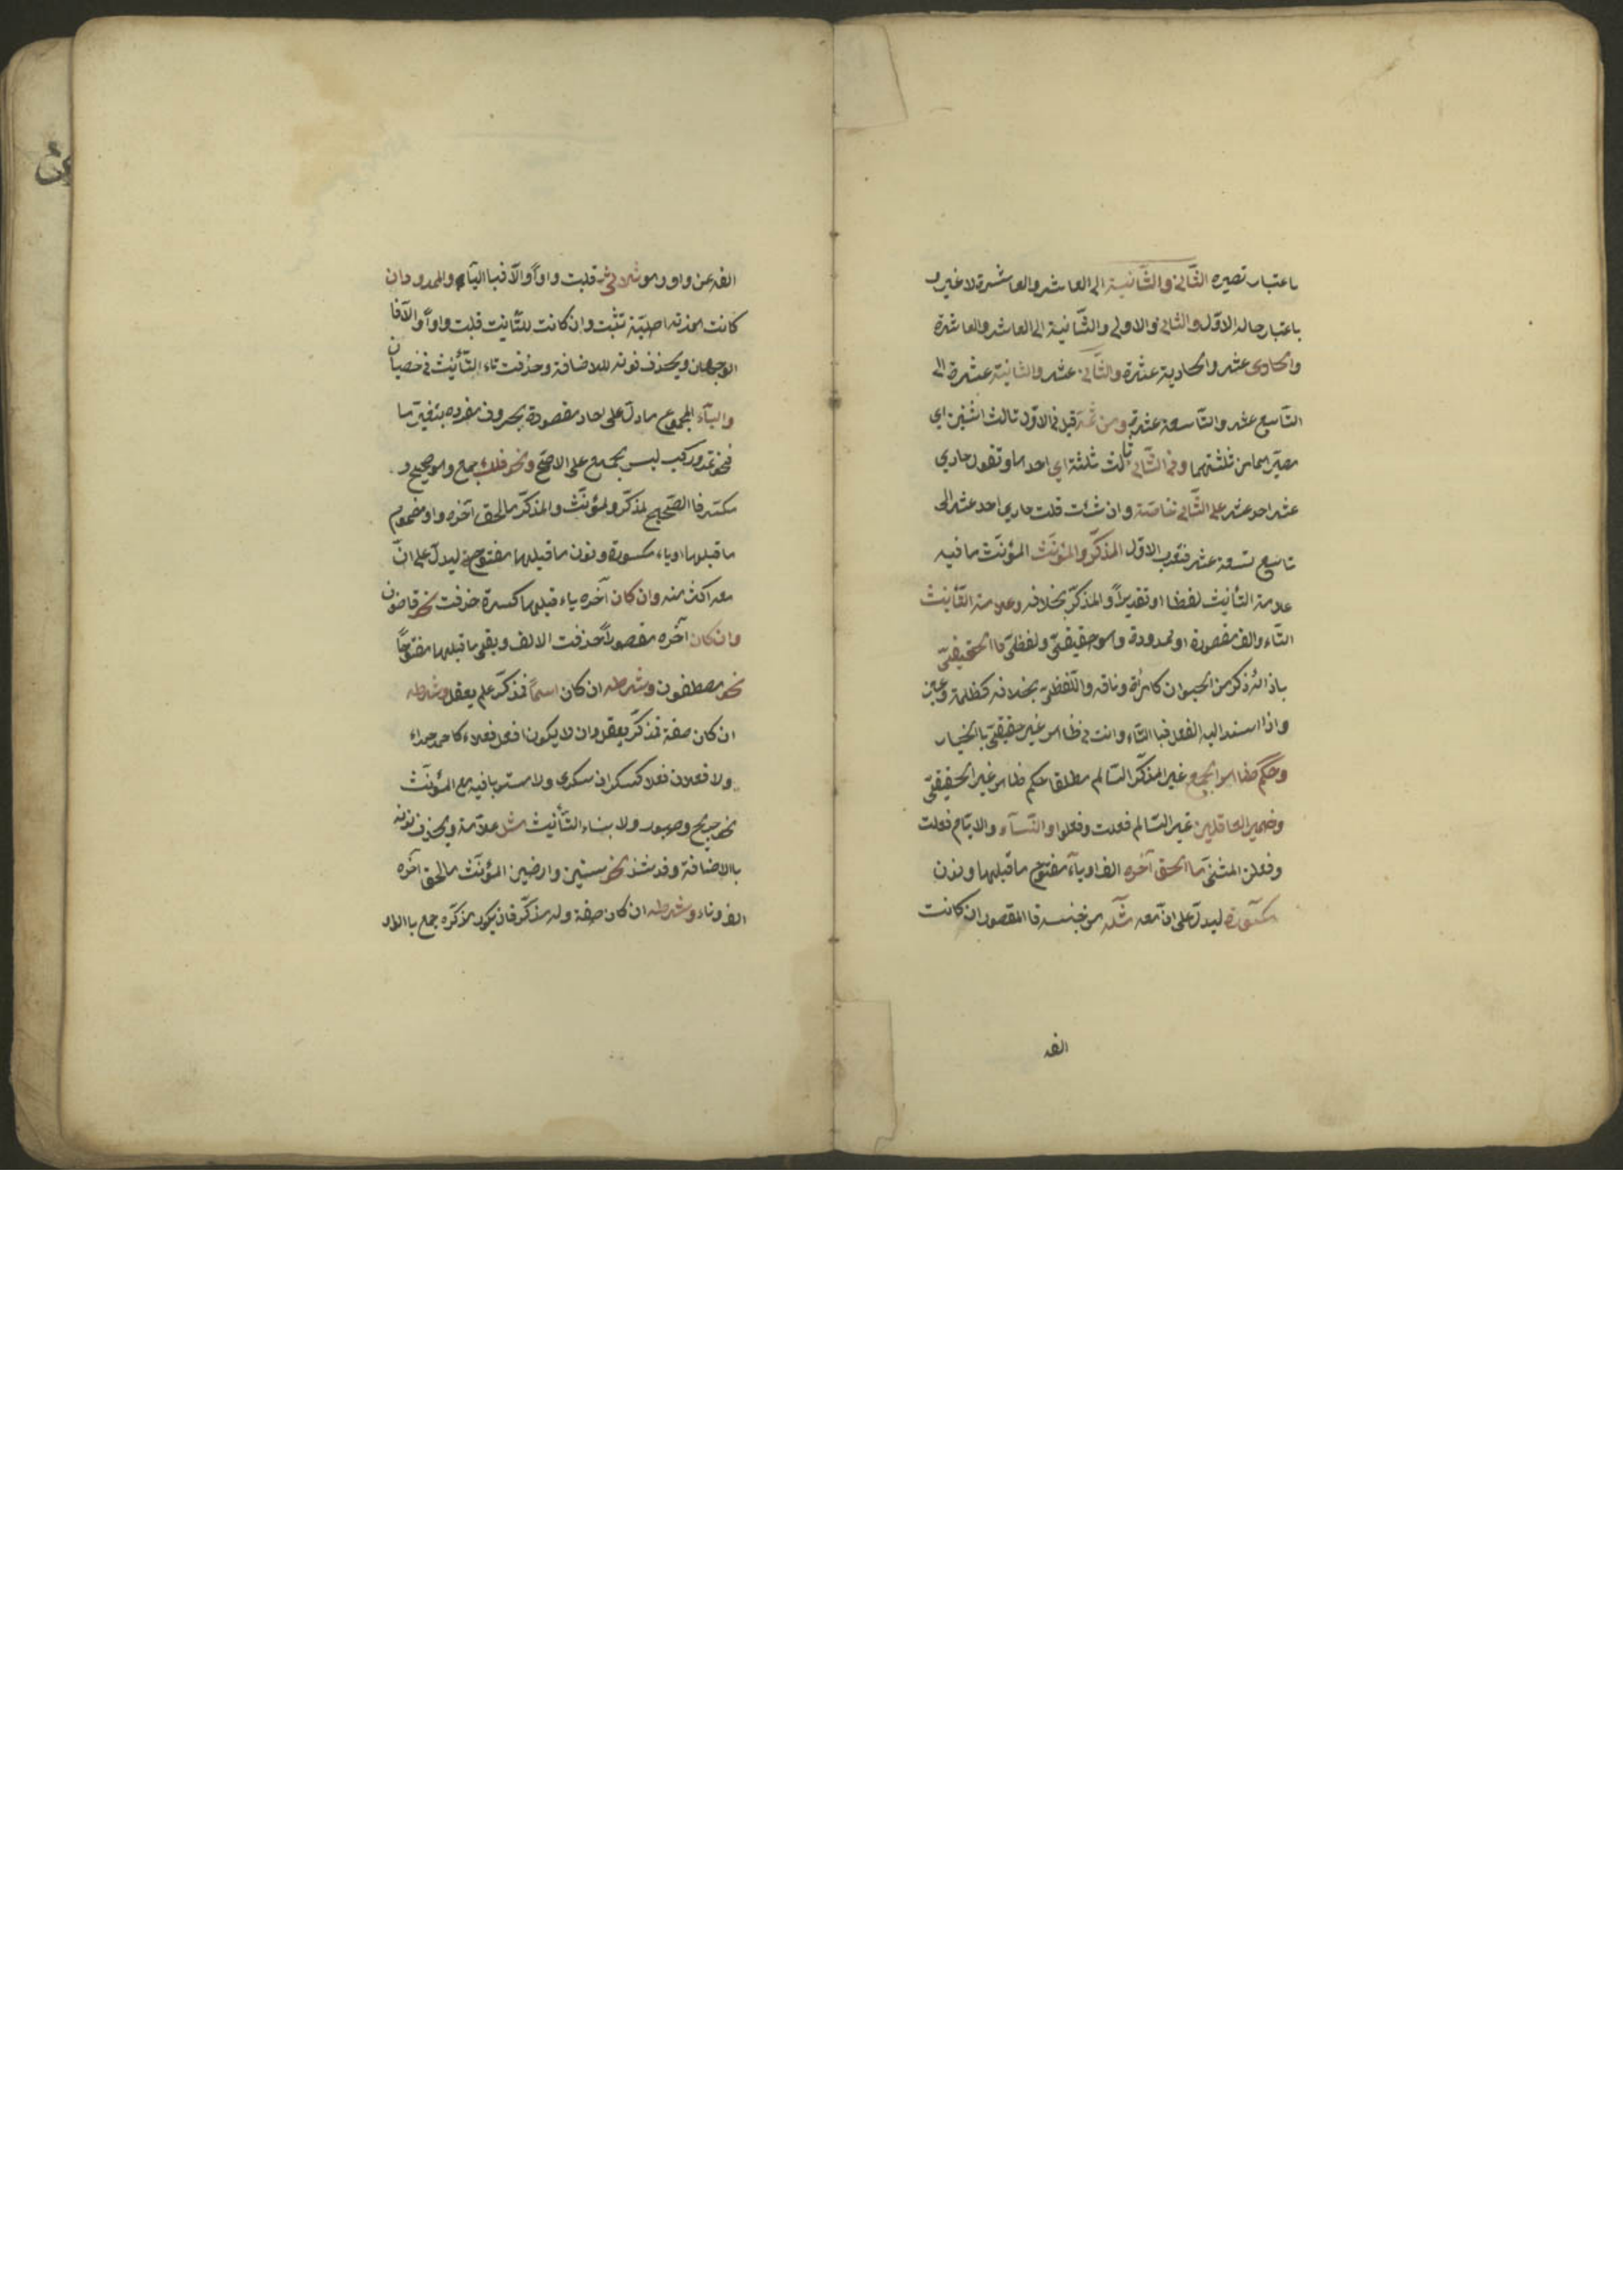 باعتبار تصيره الثّاني والثّانية الى العاشر والعاشرة لا غير و
باعتبار حاله الاوّل والثاني والاولى والثّانية الى العاشر والعاشرة
والحادى عشر والحادية عشرة والثّاني عشر والثانية عشرة الى
التّاسع عشر والتّاسعة عشرة ومن ثمّة قيل فى الاوّل ثالث اثنين اي
مصيّرهما من ثلثتهما وفى الثّاني ثالث ثلثة اي احدها وتقول حادي
عشر احد عشر على الثّاني خاصّة وان شئت قلت حادي احد عشر الى
تاسع تسعة عشر فتعرب الاول المذكّر والمؤنّث المؤنّث ما فيه
علامة التأنيث لفظا او تقديراً والمذكّر بخلافه وعلامة التّأنيث
التّاء والف مقصورة او ممدودة وهو حقيقىّ ولفظىّ فا الحقيقىّ
باذائه ذكر من الحيوان كامرأة وناقة واللّفظىّ بخلافه كظلمة وعين
واذا اسند اليه الفعل فبا التّاء وانت فى ظاهر غير حقيقىّ باالخيار
وحكم ظاهر الجمع غير المذكّر السّالم مطلقا حكم ظاهر غير الحقيقىّ
وضمير العاقلين غير السّالم فعلت وفعلوا والنّسآء والايّام فعلت
وفعلن المثنّى ما الحق آخره الف او ياء مفتوح ما قبلها ونون
مكسورة ليدلّ على انّ معه مثله من جنسه فا المقصور ان كانت
الفه
الفه عن واو وهو ثلاثى قلبت واواً والّا فبا اليآء والممدود ان
كانت همزته اصليّة تثبت وان كانت للتّأنيث قلبت واواً والّا فا
الوجهان ويحذف نونه للاضافة وحذفت تاء التّأنيث فى خصيان
واليآء المجموع ما دلّ على احاد مقصودة بحروف مفرده بتغيّر ما
فنحو تمر وركب ليس بجمع على الاصحّ ونحو فلك جمع وهو صحيح و
مكسّر فا الصّحيح لمذكّر ولمؤنّث والمذكّر ما لحق آخره واو مضموم
ما قبلها او ياء مكسورة ونون ما قبلها مفتوحة ليدلّ على انّ
معه اكثر منه وان كان آخره ياء قبلها كسرة حذفت نحو قاضون
وان كان آخره مقصوراً حذفت الالف وبقى ما قبلها مفتوحاً
نحو مصطفون وشرطه ان كان اسماً فمذكّر علم يعقل وشرطه
ان كان صفة فمذكّر يعقل وان لا يكون افعل فعلاء كاحمر حمراء
ولا فعلان فعلا كسكران سكرى ولا مستويا فيه مع المؤنّث
نحو جريح وصبور ولا بتاء التّأنيث مثل علّامة ويحذف نونه
باالاضافة وقد شذ نحو سنين وارضين المؤنّث ما لحق آخره
الف وتاء وشرطه ان كان صفة وله مذكّر فان يكون مذكّره جمع باالواو